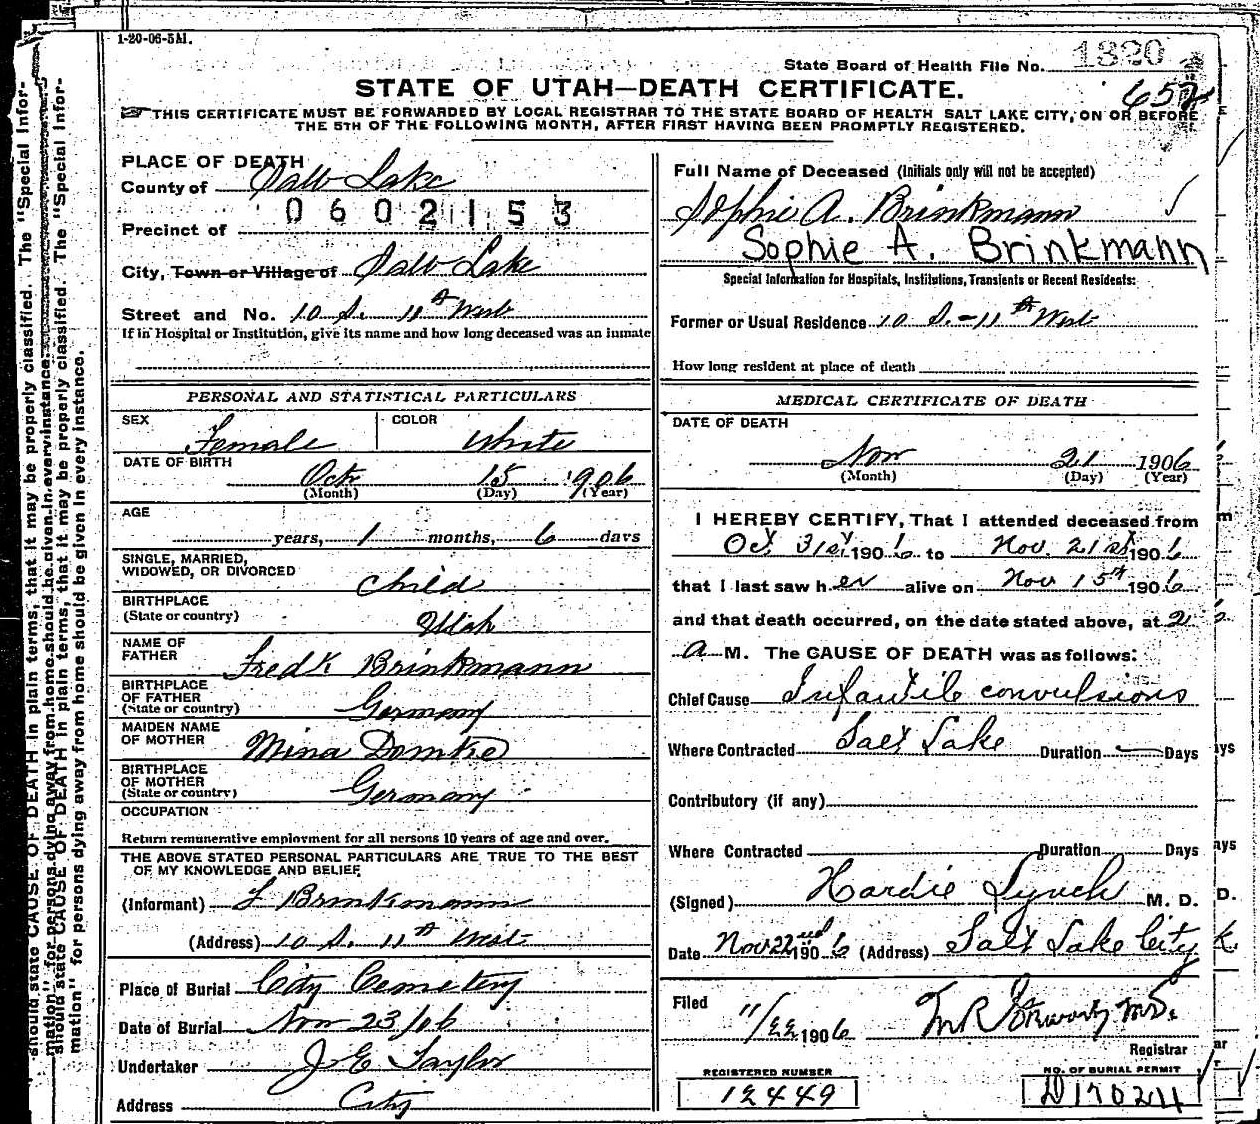 1-20-06-5M.
State Board of Health File No. 1320
652
STATE OF UTAH—DEATH CERTIFICATE.
THIS CERTIFICATE MUST BE FORWARDED BY LOCAL REGISTRAR TO THE STATE BOARD OF HEALTH SALT LAKE CITY, ON OR BEFORE
THE 5TH OF THE FOLLOWING MONTH, AFTER FIRST HAVING BEEN PROMPTLY REGISTERED.
PLACE OF DEATH
County of Salt Lake
0602153
Precinct of
City, Town or Village of Salt Lake
Street and No. 10 S. 11th West
If in Hospital or Institution, give its name and how long deceased was an inmate
PERSONAL AND STATISTICAL PARTICULARS
SEX Female COLOR White
DATE OF BIRTH Oct 15 1906
(Month) (Day) (Year)
AGE
years, 1 months, 6 days
SINGLE, MARRIED,
WIDOWED, OR DIVORCED Child
BIRTHPLACE
(State or country) Utah
NAME OF
FATHER Fredk Brinkmann
BIRTHPLACE
OF FATHER
(State or country) Germany
MAIDEN NAME
OF MOTHER Mina Domke
BIRTHPLACE
OF MOTHER
(State or country) Germany
OCCUPATION
Return remunerative employment for all persons 10 years of age and over.
THE ABOVE STATED PERSONAL PARTICULARS ARE TRUE TO THE BEST
OF MY KNOWLEDGE AND BELIEF
(Informant) F Brinkmann
(Address) 10 S. 11th West
Place of Burial City Cemetery
Date of Burial Nov 23/06
Undertaker J E Taylor
Address City
Full Name of Deceased (Initials only will not be accepted)
Sophie A. Brinkmann
Sophie A. Brinkmann
Special Information for Hospitals, Institutions, Transients or Recent Residents:
Former or Usual Residence 10 S. - 11th West
How long resident at place of death
MEDICAL CERTIFICATE OF DEATH
DATE OF DEATH
Nov 21 1906
(Month) (Day) (Year)
I HEREBY CERTIFY, That I attended deceased from
Oct 31st 1906 to Nov. 21st 1906
that I last saw her alive on Nov 15th 1906
and that death occurred, on the date stated above, at 2
a M. The CAUSE OF DEATH was as follows:
Chief Cause Infantile convulsions
Where Contracted Salt Lake Duration — Days
Contributory (if any)
Where Contracted Duration Days
(Signed) Hardie Lynch M. D.
Date Nov 22nd 1906 (Address) Salt Lake City
Filed 11/22 1906 M.D.
Registrar
REGISTERED NUMBER
12449
NO. OF BURIAL PERMIT
D17024
should state CAUSE OF DEATH in plain terms, that it may be properly classified. The "Special Infor-
mation" for persons dying away from home should be given in every instance.
should state CAUSE OF DEATH in plain terms, that it may be properly classified. The "Special Infor-
mation" for persons dying away from home should be given in every instance.